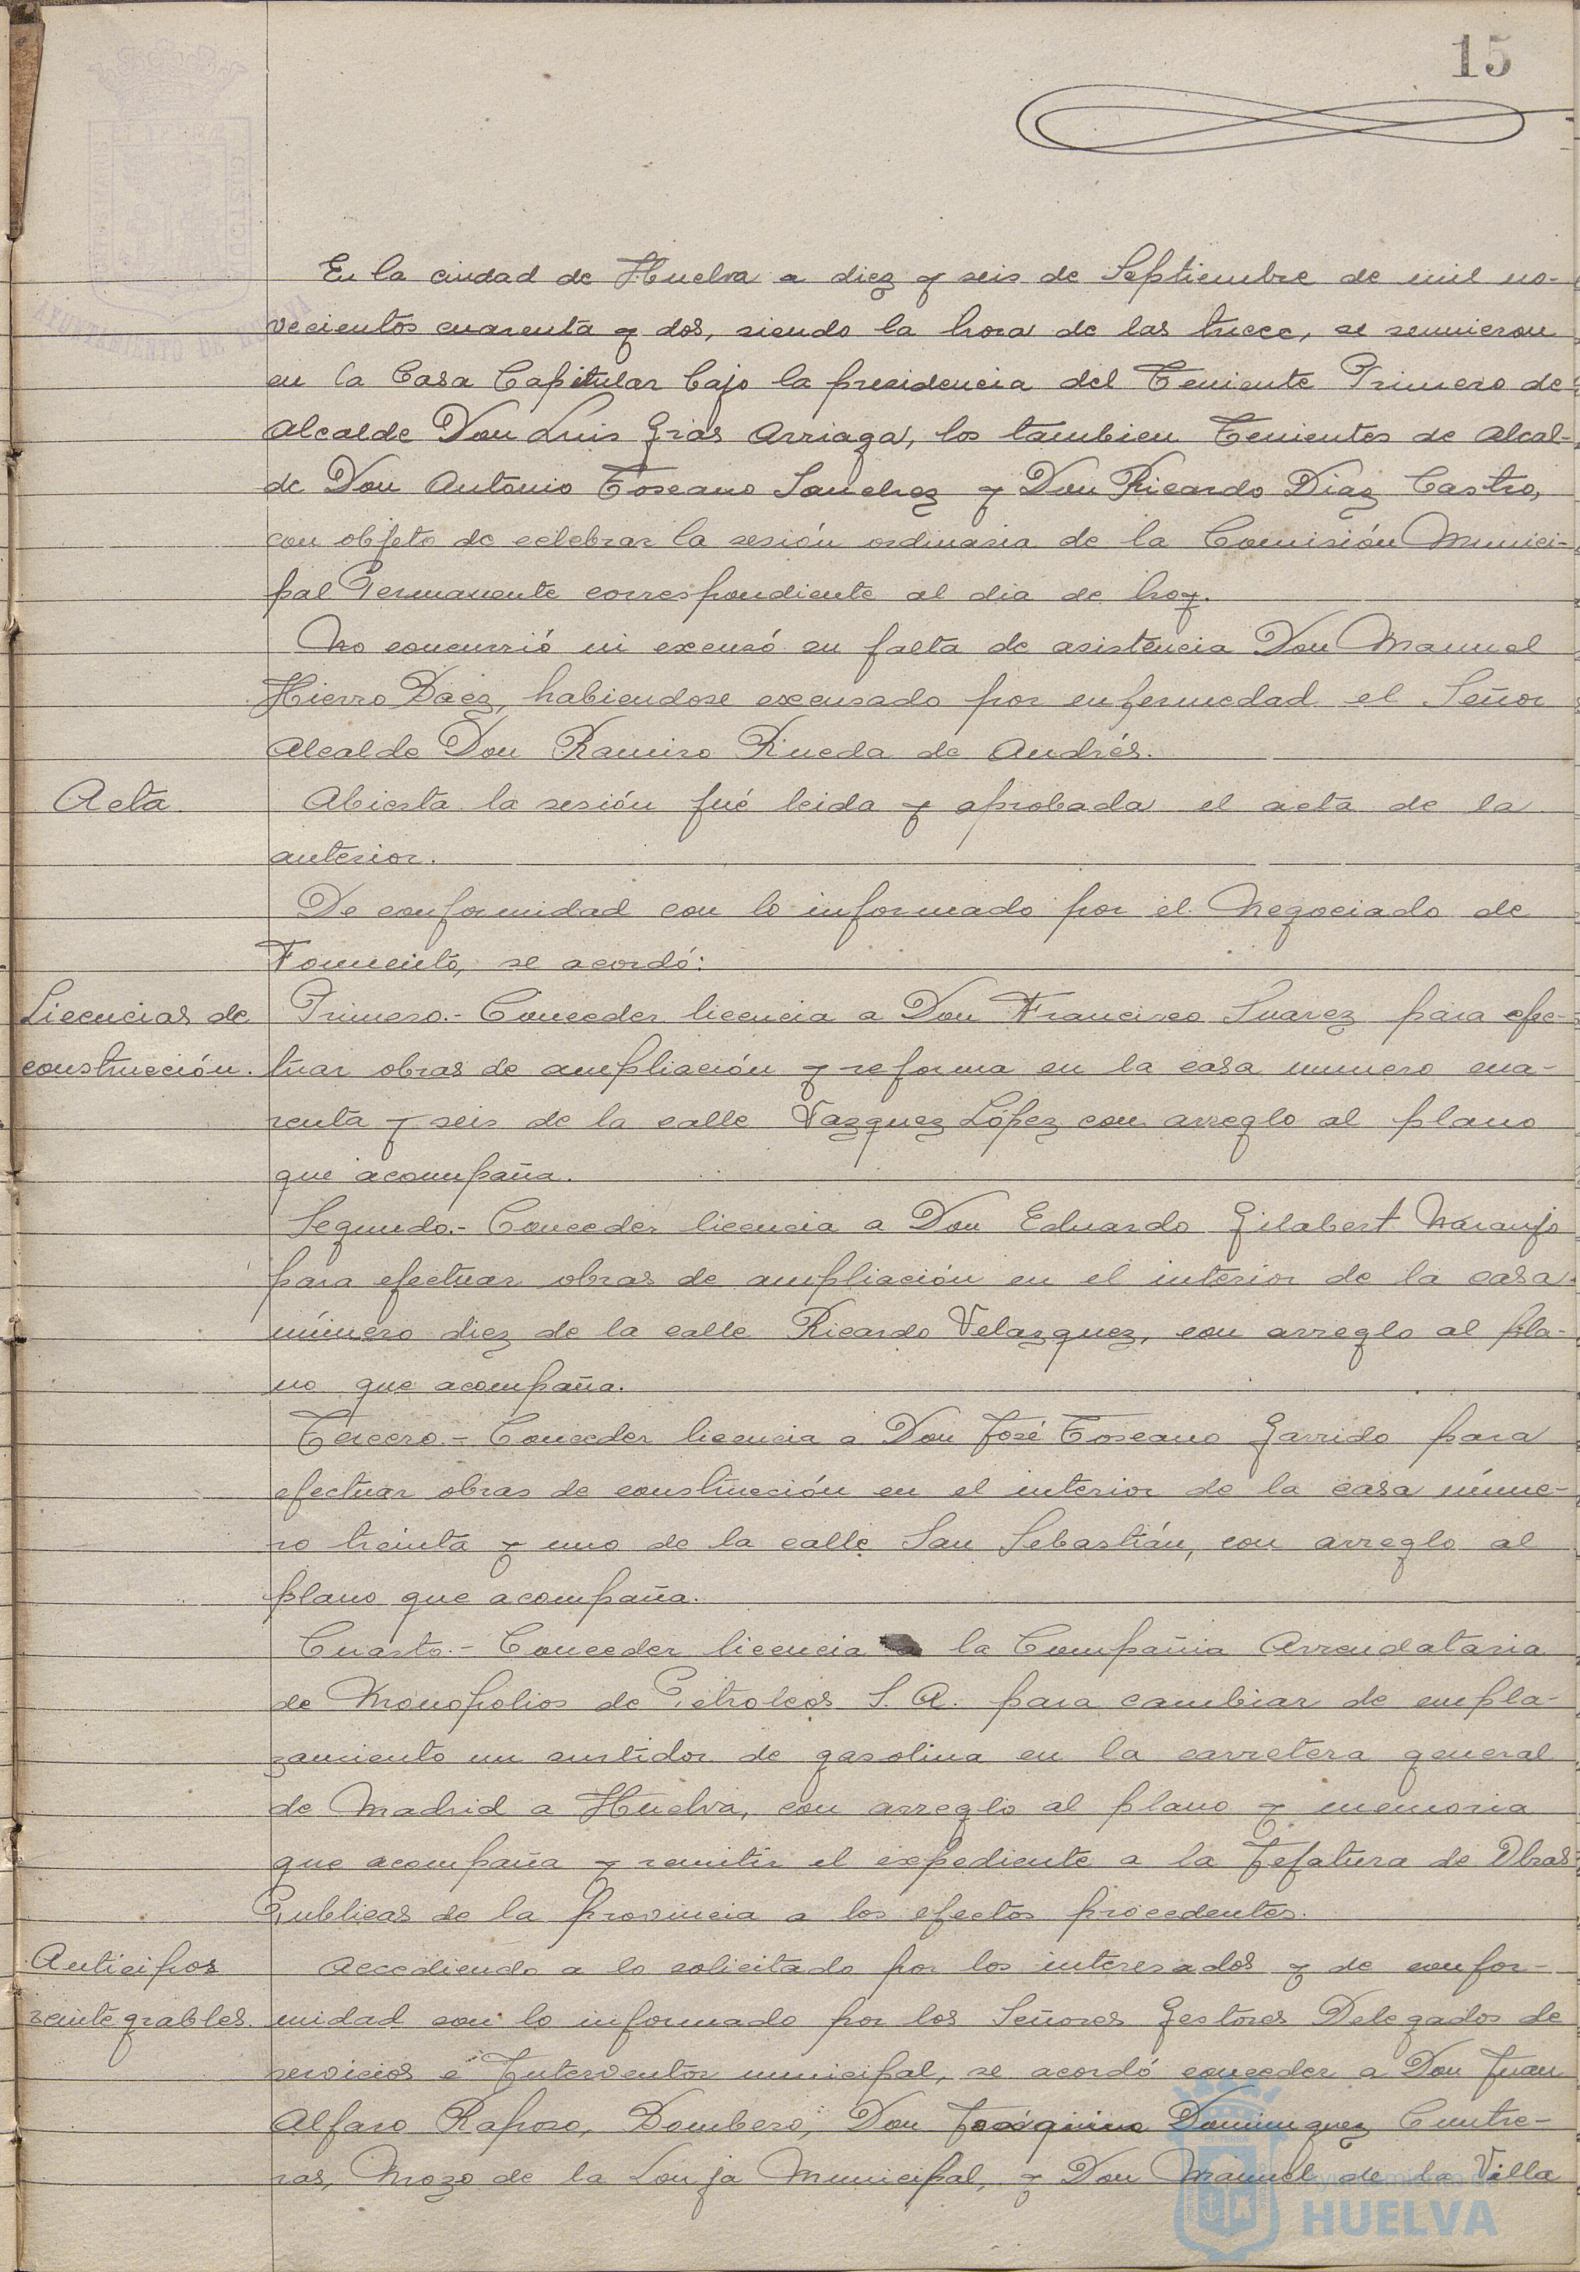 15
AYUNTAMIENTO DE HUELVA
En la ciudad de Huelva a diez y seis de Septiembre de mil no-
vecientos cuarenta y dos, siendo la hora de las trece, se reunieron
en la Casa Capitular bajo la presidencia del Teniente Primero de
Alcalde Don Luis Gras Arriaga, los tambien Tenientes de Alcal-
de Don Antonio Toscano Sanchez y Don Ricardo Diaz Castro,
con objeto de celebrar la sesión ordinaria de la Comisión Munici-
pal Permanente correspondiente al dia de hoy.
No concurrió ni excusó su falta de asistencia Don Manuel
Hierro Baez, habiendose excusado por enfermedad el Señor
Alcalde Don Ramiro Rueda de Andrés.
Acta. Abierta la sesión fué leida y aprobada el acta de la
anterior.
De conformidad con lo informado por el Negociado de
Fomento, se acordó:
Licencias de Primero.- Conceder licencia a Don Francisco Suarez para efec-
construcción. tuar obras de ampliación y reforma en la casa numero cua-
renta y seis de la calle Vazquez López con arreglo al plano
que acompaña.
Segundo.- Conceder licencia a Don Eduardo Gilabert Naranjo
para efectuar obras de ampliación en el interior de la casa
número diez de la calle Ricardo Velazquez, con arreglo al pla-
no que acompaña.
Tercero.- Conceder licencia a Don José Toscano Garrido para
efectuar obras de construcción en el interior de la casa núme-
ro treinta y uno de la calle San Sebastián, con arreglo al
plano que acompaña.
Cuarto.- Conceder licencia a la Compañia Arrendataria
de Monopolios de Petroleos S. A. para cambiar de empla-
zamiento un surtidor de gasolina en la carretera general
de Madrid a Huelva, con arreglo al plano y memoria
que acompaña y remitir el expediente a la Jefatura de Obras
Publicas de la provincia a los efectos procedentes.
Anticipos Accediendo a lo solicitado por los interesados y de confor-
reintegrables. midad con lo informado por los Señores Gestores Delegados de
servicios e Interventor municipal, se acordó conceder a Don Juan
Alfaro Raposo, Bombero, Don Joaquin Dominguez Contre-
ras, Mozo de la Lonja Municipal, y Don Manuel de la Villa
Ayuntamiento de
HUELVA